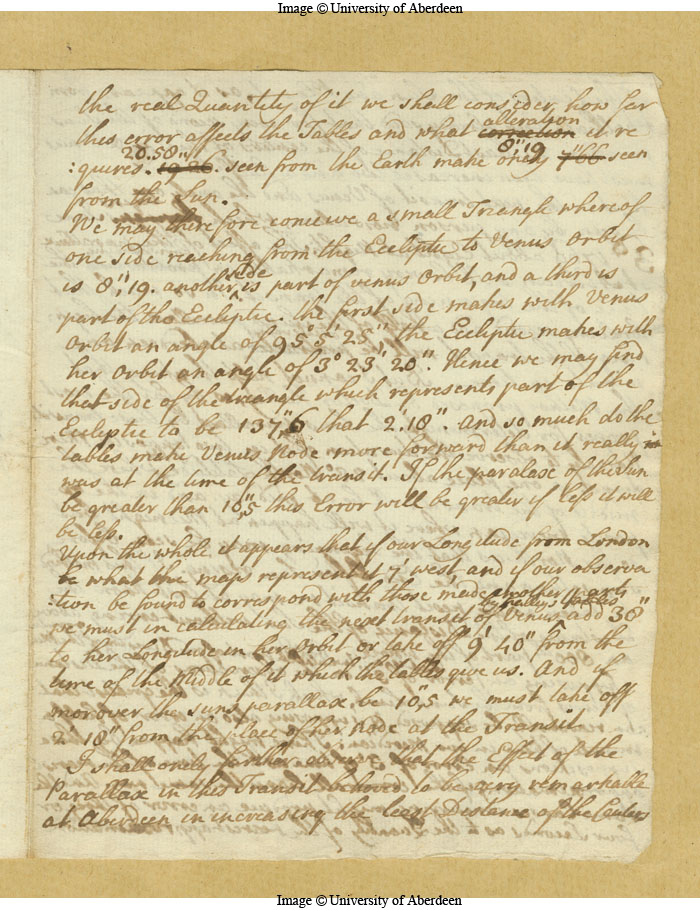 Image © University of Aberdeen
the real Quantity of it we shall consider, how far
this error affects the Tables and what correction alteration it re
:quires. 20.58" 19.26. seen from the Earth make only 8",19 7"66 seen
from the Sun.
We may therefore conceive a small Triangle whereof
one side reaching from the Ecliptic to Venus Orbit
is 8",19. another side is part of venus Orbit, and a third is
part of the Ecliptic. the first side makes with Venus
Orbit an angle of 95° 5' 25", the Ecliptic makes with
her Orbit an angle of 3° 23' 20". Hence we may find
that side of the triangle which represents part of the
Ecliptic to be 137",6 that 2'.18". and so much do the
tables make Venus Node more forward than it really
was at the time of the transit. If the paralaxe of the Sun
be greater than 10",5 this Error will be greater if less it will
be less.
Upon the whole it appears that if our Longitude from London
be what the maps represent it 7' west, and if our observa
:tion be found to correspond with those made in other parts
we must in calculating the next transit of Venus by add 38"
to her Longitude in her Orbit or take off 9' 40" from the
time of the Middle of it which the tables give us. And if
moreover the suns parallax be 10",5 we must take off
2' 18" from the place of her Node at the Transit
I shall only farther observe that the Effect of the
Parallax in this Transit behoved to be very remarkable
at Aberdeen in increasing the least Distance of the Centers
Image © University of Aberdeen